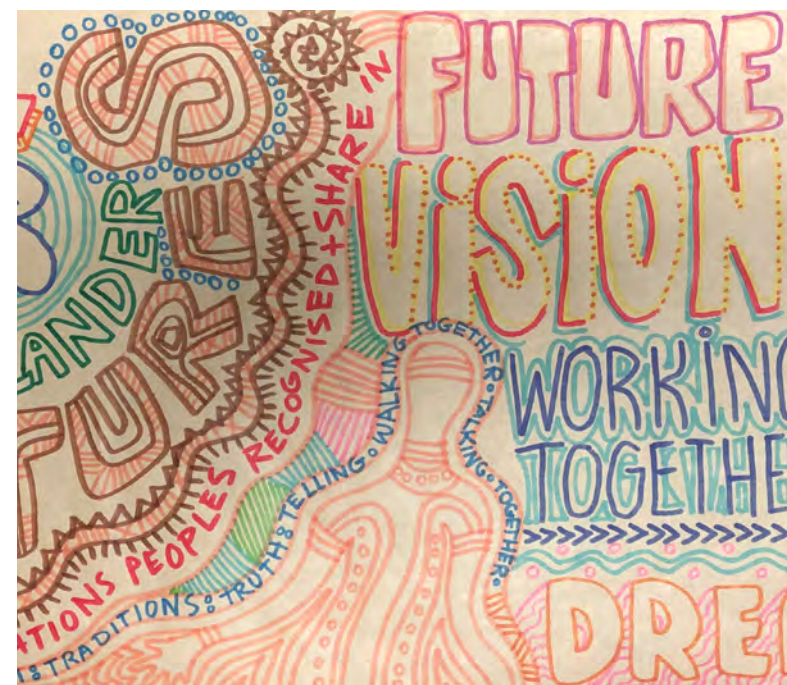 LANDER
TURES
ATIONS PEOPLES RECOGNISED + SHARE IN
TRADITIONS: TRUTH: TELLING: WALKING TOGETHER: TALKING: TOGETHER:
FUTURE
ViSiON
WORKiN
TOGETHE
DRE